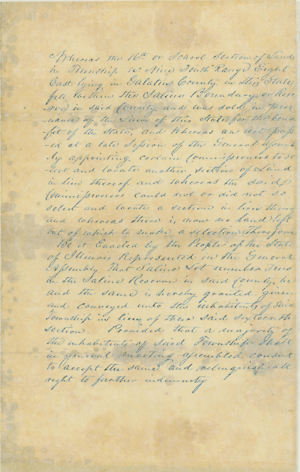 Whereas the 16th or School Section of Land
in Township No Nine South Range Eight
East lying in Gallatin County in this State
fell within the Saline boundary or Reser
ve in said County and was sold in pur
suance of the Laws of this State for the bene
fit of the State, and Whereas an act pass
ed at a late Session of the General Assem
bly appointing certain Commissioners to se
lect and locate another section of Land
in lieu thereof and whereas the said
Commissioners could not or did not so
select and locate a section in lieu thereof
and whereas there is now no Land left
out of which to make a selection therefore
Be it Enacted by the People of the State
of Illinois Represented in the General
Assembly That Saline Lot number
in the Saline Reserve in said County, be
and the same is hereby granted Given
and conveyed unto the inhabitants of said
Township in lieu of there said sixteenth
section Provided that a majority of
the inhabitants of said Township shall
in general meeting assembled consent
to accept the same and relinquish all
right to further indemnity